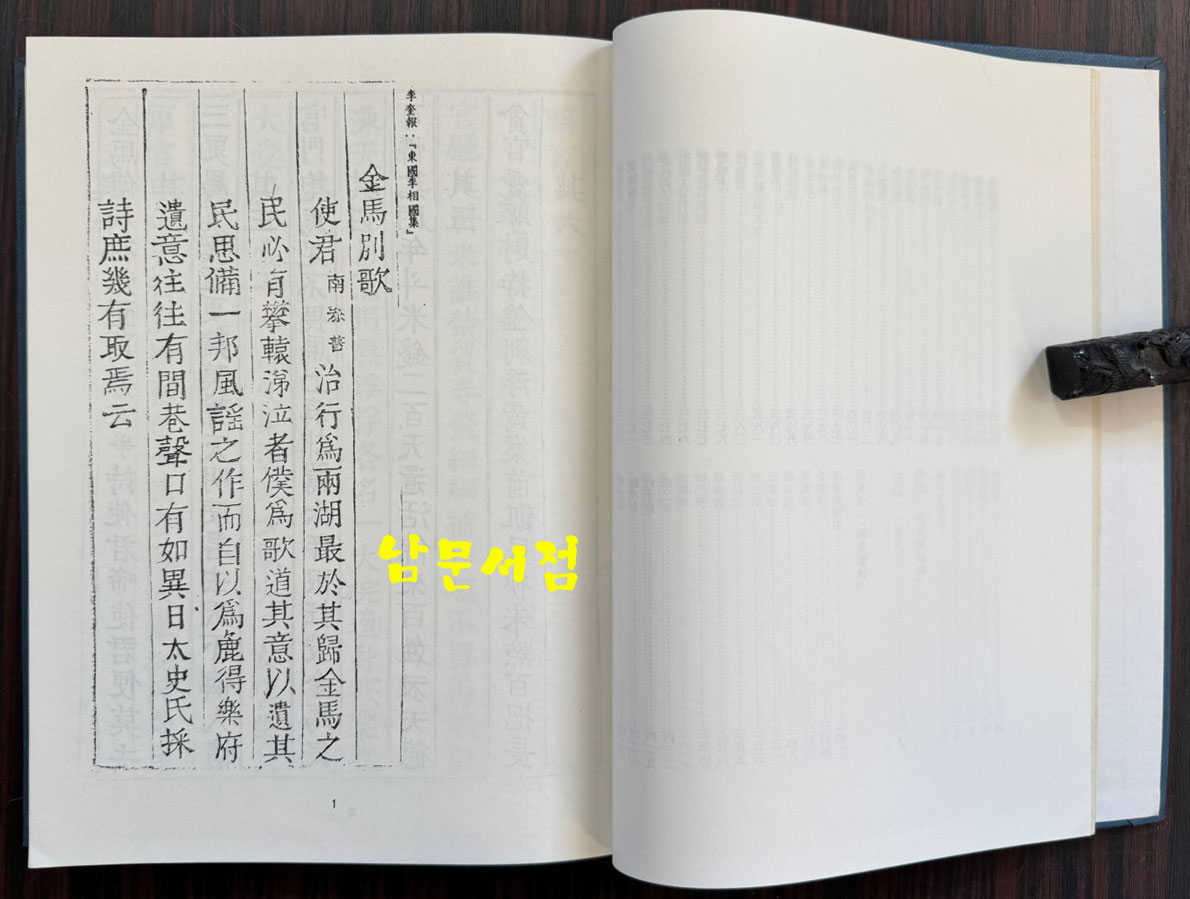 李奎報:『東國李相國集』
金馬別歌
使君南泰普治行爲兩湖最於其歸金馬之
民必有攀轅涕泣者僕爲歌道其意以遺其
民思備一邦風謠之作而自以爲麁得樂府
遺意往往有閭巷聲口有如異日太史氏採
詩庶幾有取焉云
남문서점
1